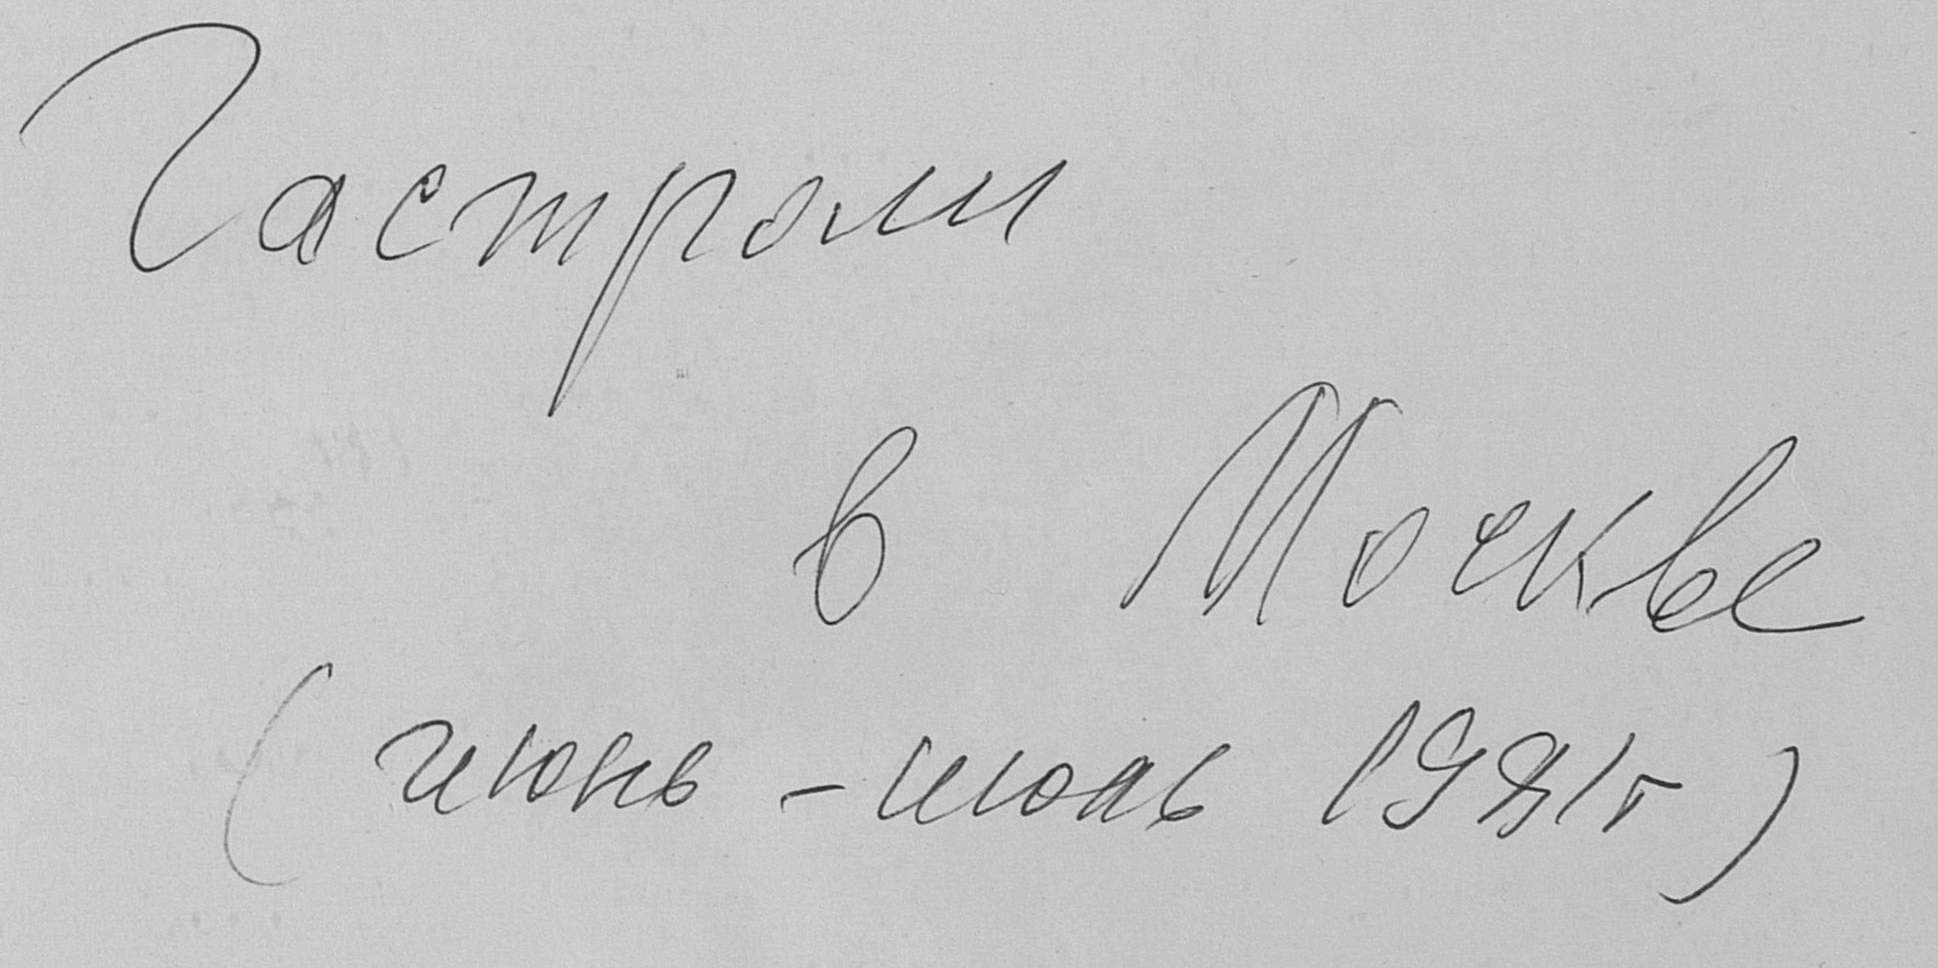 Гастроли
в Москве
(июнь - июль 1981г)